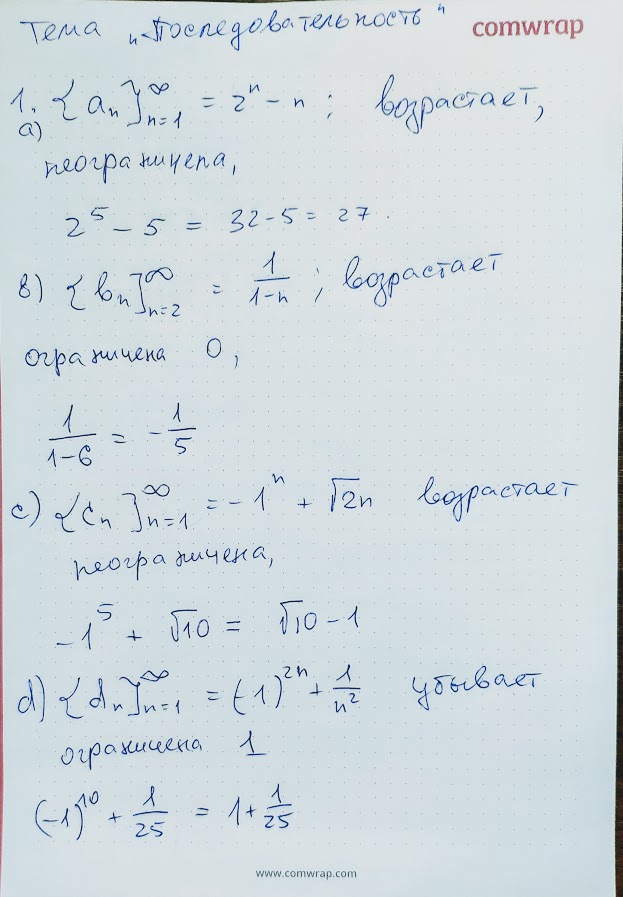 Тема "Последовательность" comwrap
1. a) {a_n}_{n=1}^∞ = 2^n - n ; возрастает,
неограничена,
2^5 - 5 = 32 - 5 = 27.
в) {b_n]_{n=2}^∞ = 1/(1-n) ; возрастает
ограничена 0,
1/(1-6) = -1/5
c) {c_n]_{n=1}^∞ = -1^n + √2n возрастает
неограничена,
-1^5 + √10 = √10 - 1
d) {d_n]_{n=1}^∞ = (-1)^{2n} + 1/n^2 убывает
ограничена 1
(-1)^{10} + 1/25 = 1 + 1/25
www.comwrap.com